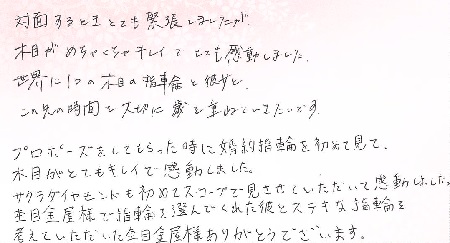 対面するときとても緊張しましたが、
木目がめちゃくちゃキレイでとても感動しました。
世界に1つの木目の指輪と彼女と、
この先の時間を大切に歳を重ねていきたいです。
プロポーズをしてもらった時に婚約指輪を初めて見て、
木目がとてもキレイで感動しました。
サクラダイヤモンドも初めてスコープで見させていただいて感動しました。
杢目金屋様で指輪を選んでくれた彼とステキな指輪を
考えていただいた杢目金屋様ありがとうございます。